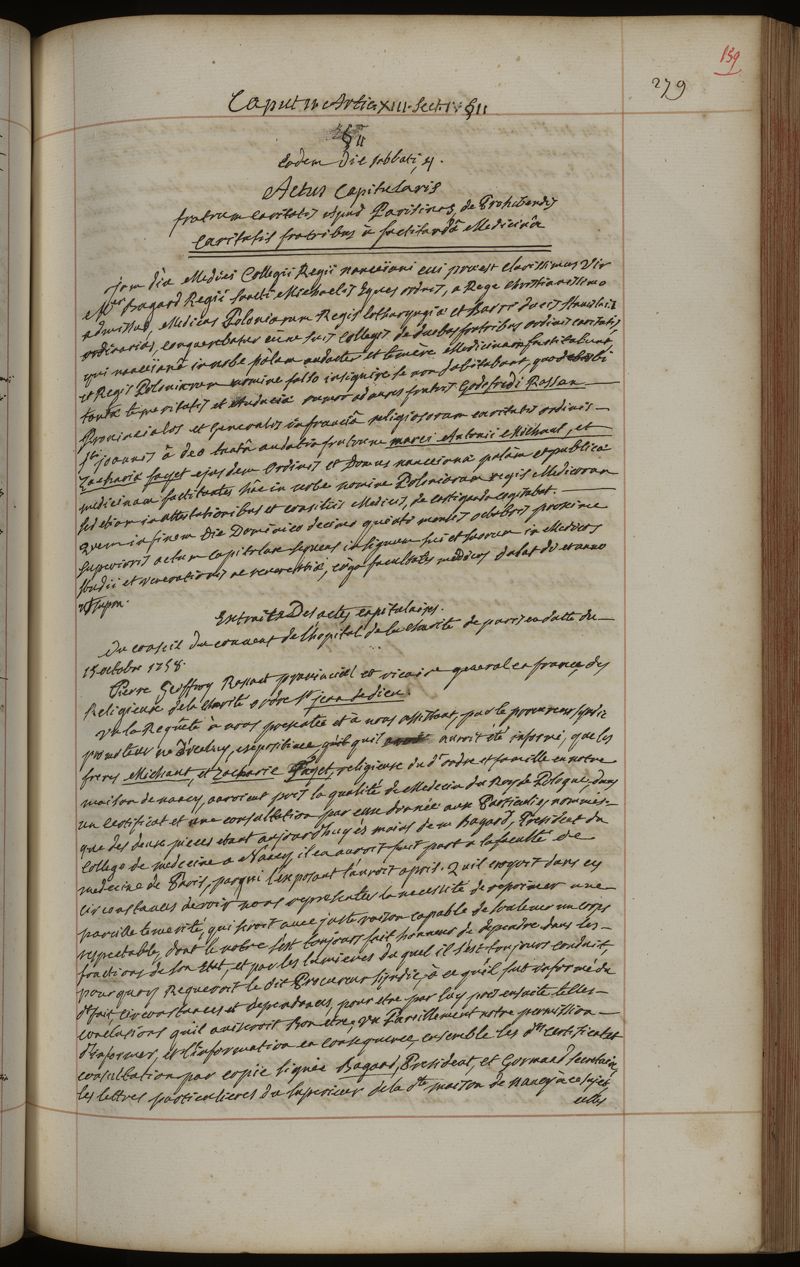 159
279
Caput IV Artic XIII. Sect. IV § II
§ II
Eodem Die sabbati, 4.
Actus Capitularis
fratrum caritatis apud Parisinos, de Prohibendis
Caritatis fratribus à factitandâ Medicinâ
jam dia Medici Collegii Regii nanceïani cui præest clarissimus Vir
Mr Bagard Regii sancti Michaelis Eques ordinis, a Rege Christianissimo
admissus, Medicus Poloniarum Regis lotharyngiæ et Barri ducis stanislai
ordinarius, conquerebatur sui Collegii de duobus fratribus ordinis caritatis,
qui nanceïanâ in urbe pâlam audacter et temerè Medicinam factitabant,
et Regis Poloniarum nomine falso insignire se non dubitabant, quod ubi
tantæ temeritatis et audaciæ rumor ad aures fratris Godefredi Rossan
Provincialis et Generalis in franciâ religiosorum caritatis ordinis
sti joannis à deo fratrum marci Antonii Michaut, et
Zachariæ faget ejusdem Ordinis et Domus nanceianæ palam et publicè
medicinam factitantes hâc in urbe nomine Poloniarum regis Medicorum
sed etiam in attestationibus et consiliis Medicis, de castigando cogitabat.
Quem in finem Die Dominico decimo quinto mensis octobris proxime
superioris actum capitulare sequens in signum sui et suorum in Medicos
studii et venerationis ac reverentiæ, ergo facultates medicas dabat die et anno
ut supra.
Extrait Des actes capitulaires.
Du conseil du couvent de l'hopital de la charité de paris en datte du
15 octobre 1758.
Pierre Geoffroy Rossant provincial et vicaire general en france, des
Religieux de la charité ordre st jean de dieu.
Vu la Requête à nous presentée et à nous assistant, par le procureur syndic
promoteur expositive, qu'il auroit été informé, que les
freres Michaut, et Zacharie Faget, religieux du d. ordre et famille en notre
maison de nancy, auroient pris la qualité de Medecin du Roy de Pologne, dans
un Certificat et une consultation par eux donnée aux Particuliers nommés
que des deux pieces etant aujourd'huy ès mains de m Bagard, President du
College de medecine a Nancy, il en auroit fait part à la faculté de
medecine de Paris, par qui l'exposant l'auroit apris. Qu'il croyoit dans ces
circonstances devoir nous representer la necessité de reprimer une
pareille temerité, qui seroit avec juste raison capable de soulever un corps
respectable, dont le notre s'est toujours fait honneur de dependre dans les
fonctions de son Etat, et par les lumieres du quel il s'est toujours conduit
pourquoy Requeroit le dit Procureur syndic, à ce qu'il fut informé du
d. fait, circonstances et dependances, pour etre par luy pris ensuite telles
conclusions qu'il aviseroit bon etre; Vu Pareillement notre permission
d'informer, et l'information en consequence, ensemble les dits certificat et
consultation par copie signée Bagard, President, et Gormand secretaire,
les lettres particulieres du superieur de la dte maison de nancy à ce sujet
celles